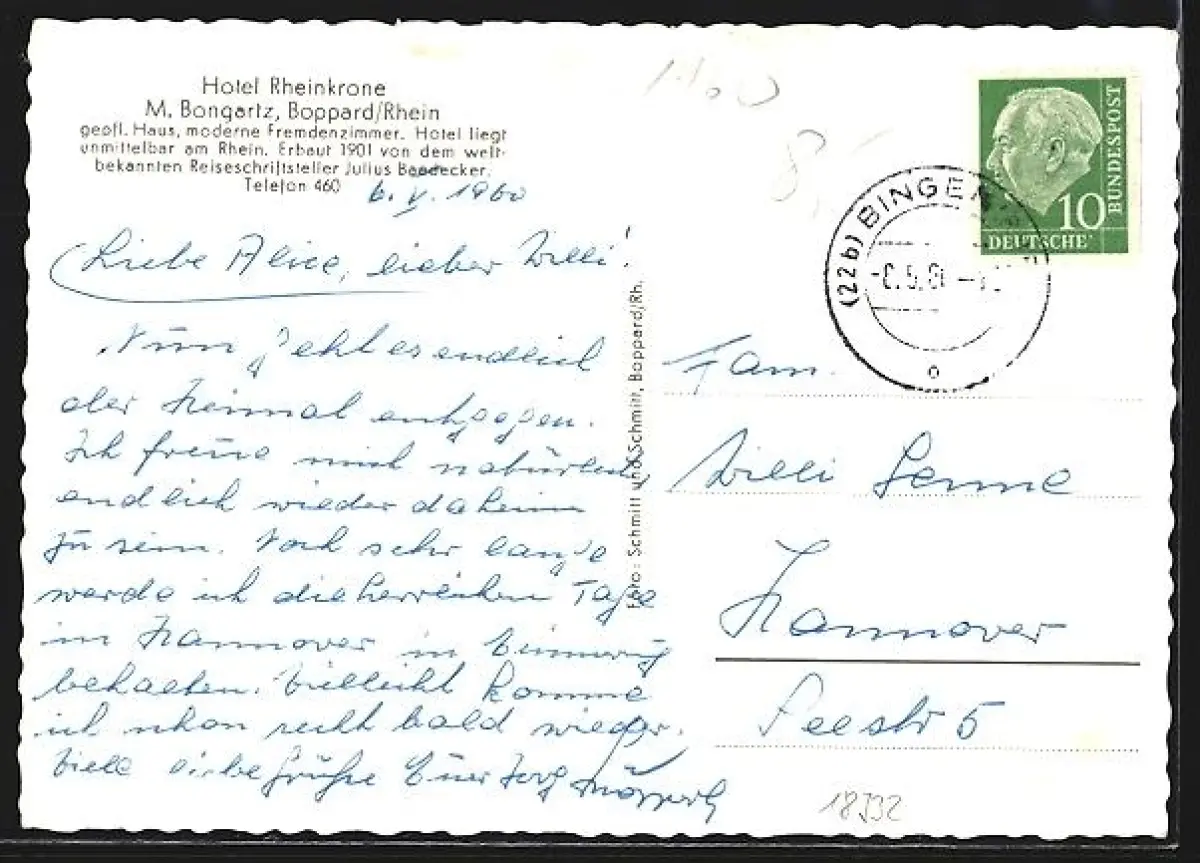 Hotel Rheinkrone
M. Bongartz, Boppard/Rhein
gepfl. Haus, moderne Fremdenzimmer. Hotel liegt
unmittelbar am Rhein. Erbaut 1901 von dem welt-
bekannten Reiseschriftsteller Julius Baedecker.
Telefon 460
6. V. 1960
Liebe Alice, lieber Willi!
Nun geht es endlich
der Heimat entgegen.
Ich freue mich natürlich,
endlich wieder daheim
zu sein. Noch sehr lange
werde ich die herrlichen Tage
in Hannover in Erinnerung
behalten. Vielleicht komme
ich schon recht bald wieder.
Viele liebe Grüße Euer Jörg
Foto: Schmitt und Schmitt, Boppard/Rh.
BUNDESPOST
10
DEUTSCHE
(22b) BINGEN
Fam.
Willi Senne
Hannover
Seestr 5
18932